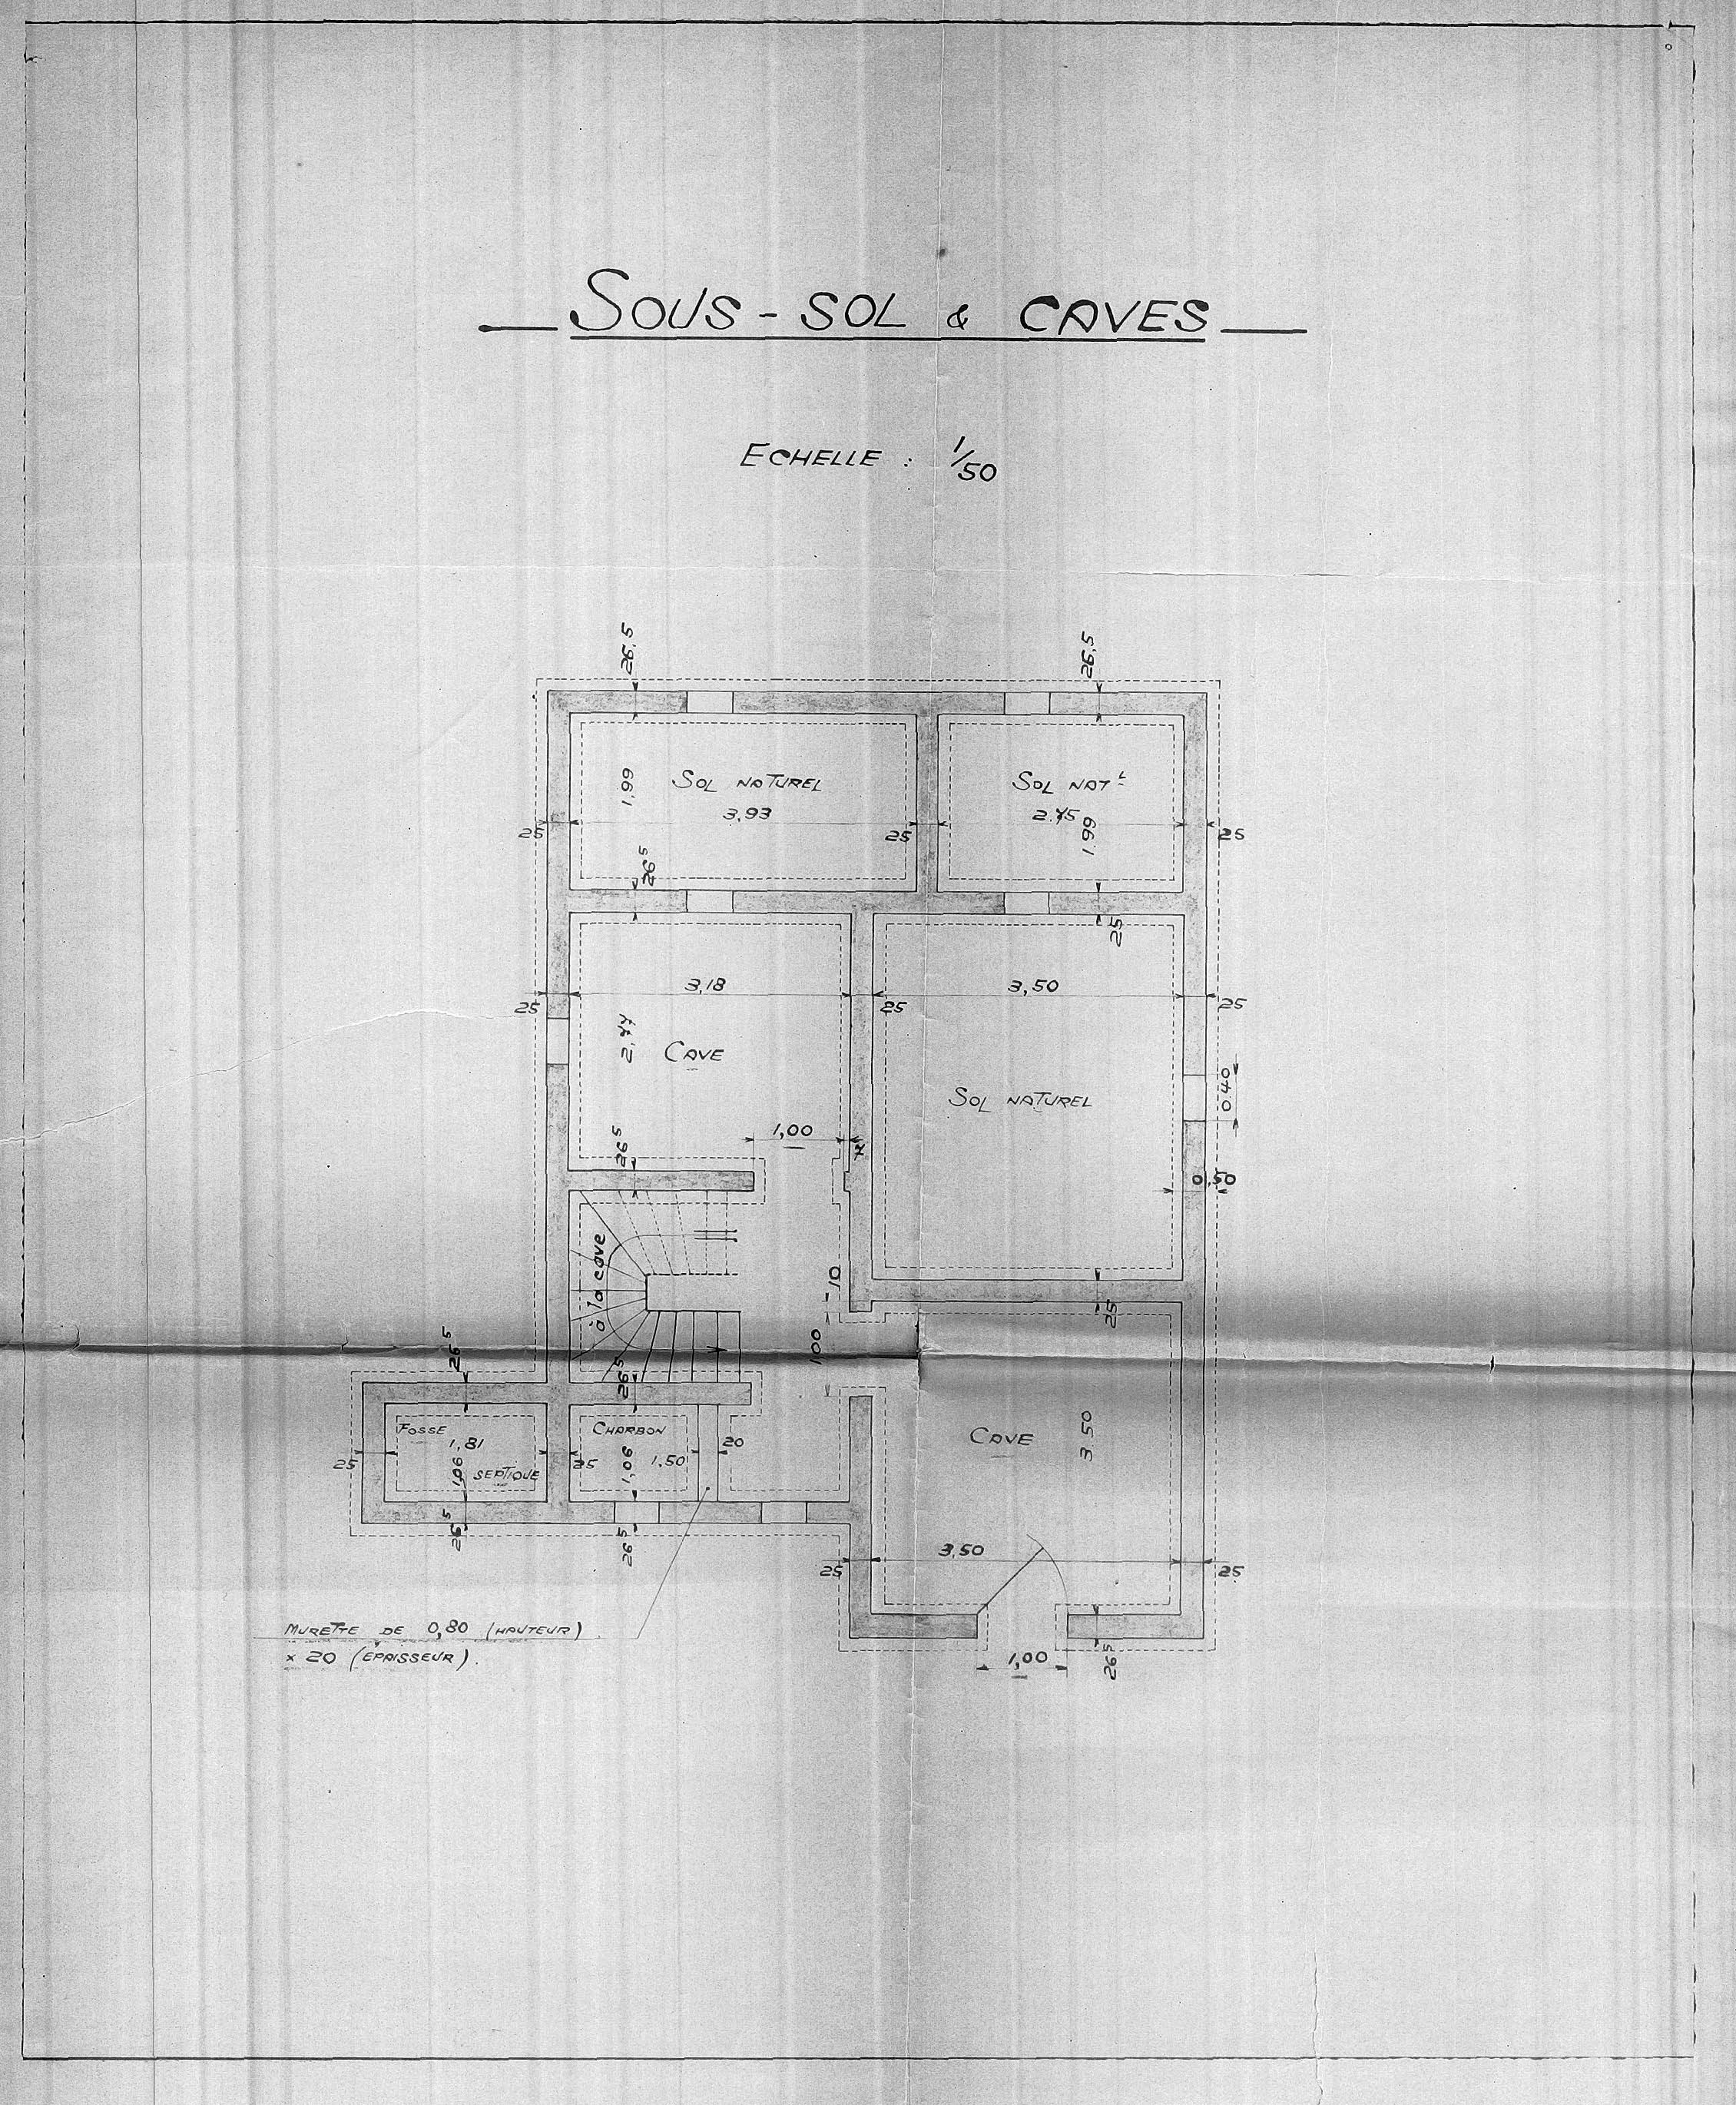 SOUS - SOL & CAVES
ECHELLE : 1/50
26,5
26,5
1,99
SOL NATUREL
3,93
SOL NAT L
2.75
1.99
25
25
25
26 5
25
3,18
3,50
25
25
25
2,77
CAVE
SOL NATUREL
0.40
1,00
26 5
0,50
à la cave
10
1.00
25
26 5
26 5
FOSSE
1,81
1,06
SEPTIQUE
25
CHARBON
25
1,06
1,50
20
CAVE
3 50
26 5
26 5
3,50
25
25
MURETTE DE 0,80 (HAUTEUR)
x 20 (EPAISSEUR).
1,00
26 5